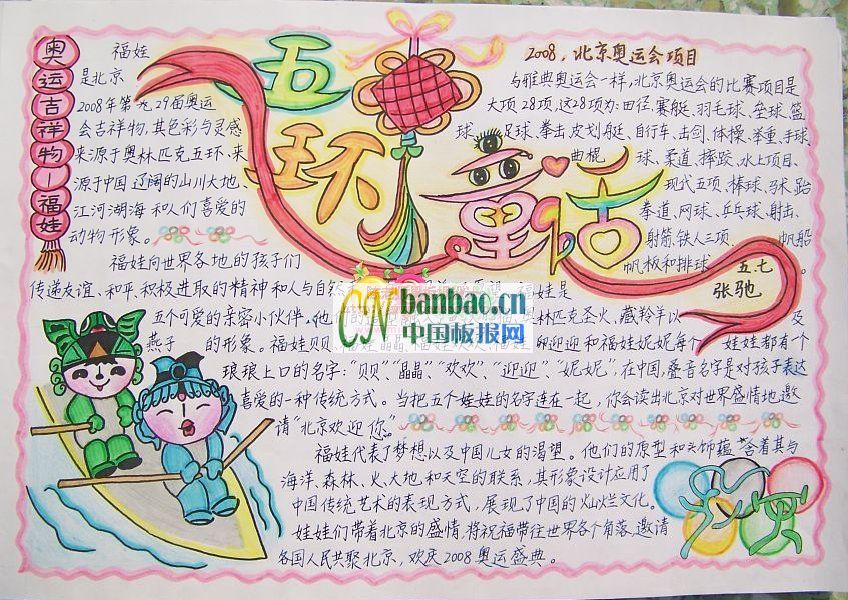 奥运吉祥物—福娃
五环童话
福娃
是北京
2008年第 29届奥运
会吉祥物,其色彩与灵感
来源于奥林匹克五环,来
源于中国辽阔的山川大地、
江河湖海和人们喜爱的
动物形象。
福娃向世界各地的孩子们
传递友谊、和平、积极进取的精神和人与自然
福娃是
五个可爱的亲密小伙伴,他
奥林匹克圣火、藏羚羊以 及
燕子 的形象。福娃贝贝
迎迎和福娃妮妮每个 娃娃都有个
琅琅上口的名字:“贝贝”、“晶晶”、“欢欢”、“迎迎”、“妮妮”,在中国,叠音名字是对孩子表达
喜爱的一种传统方式。当把五个娃娃的名字连在一起,你会读出北京对世界盛情地邀
请“北京欢迎您”。
福娃代表了梦想以及中国儿女的渴望。他们的原型和头饰蕴含着其与
海洋、森林、火、大地、和天空的联系,其形象设计应用了
中国传统艺术的表现方式,展现了中国的灿烂文化。
娃娃们带着北京的盛情,将祝福带往世界各个角落,邀请
各国人民共聚北京,欢庆2008奥运盛典。
2008,北京奥运会项目
与雅典奥运会一样,北京奥运会的比赛项目是
大项28项,这28项为:田径、赛艇、羽毛球、垒球、篮
球、足球、拳击、皮划艇、自行车、击剑、体操、举重、手球、
曲棍 球、柔道、摔跤、水上项目、
现代五项、棒球、马术、跆
拳道、网球、乒乓球、射击、
射箭、铁人三项、 帆船
帆板和排球 。
五七
张驰
CNbanbao.cn
中国板报网